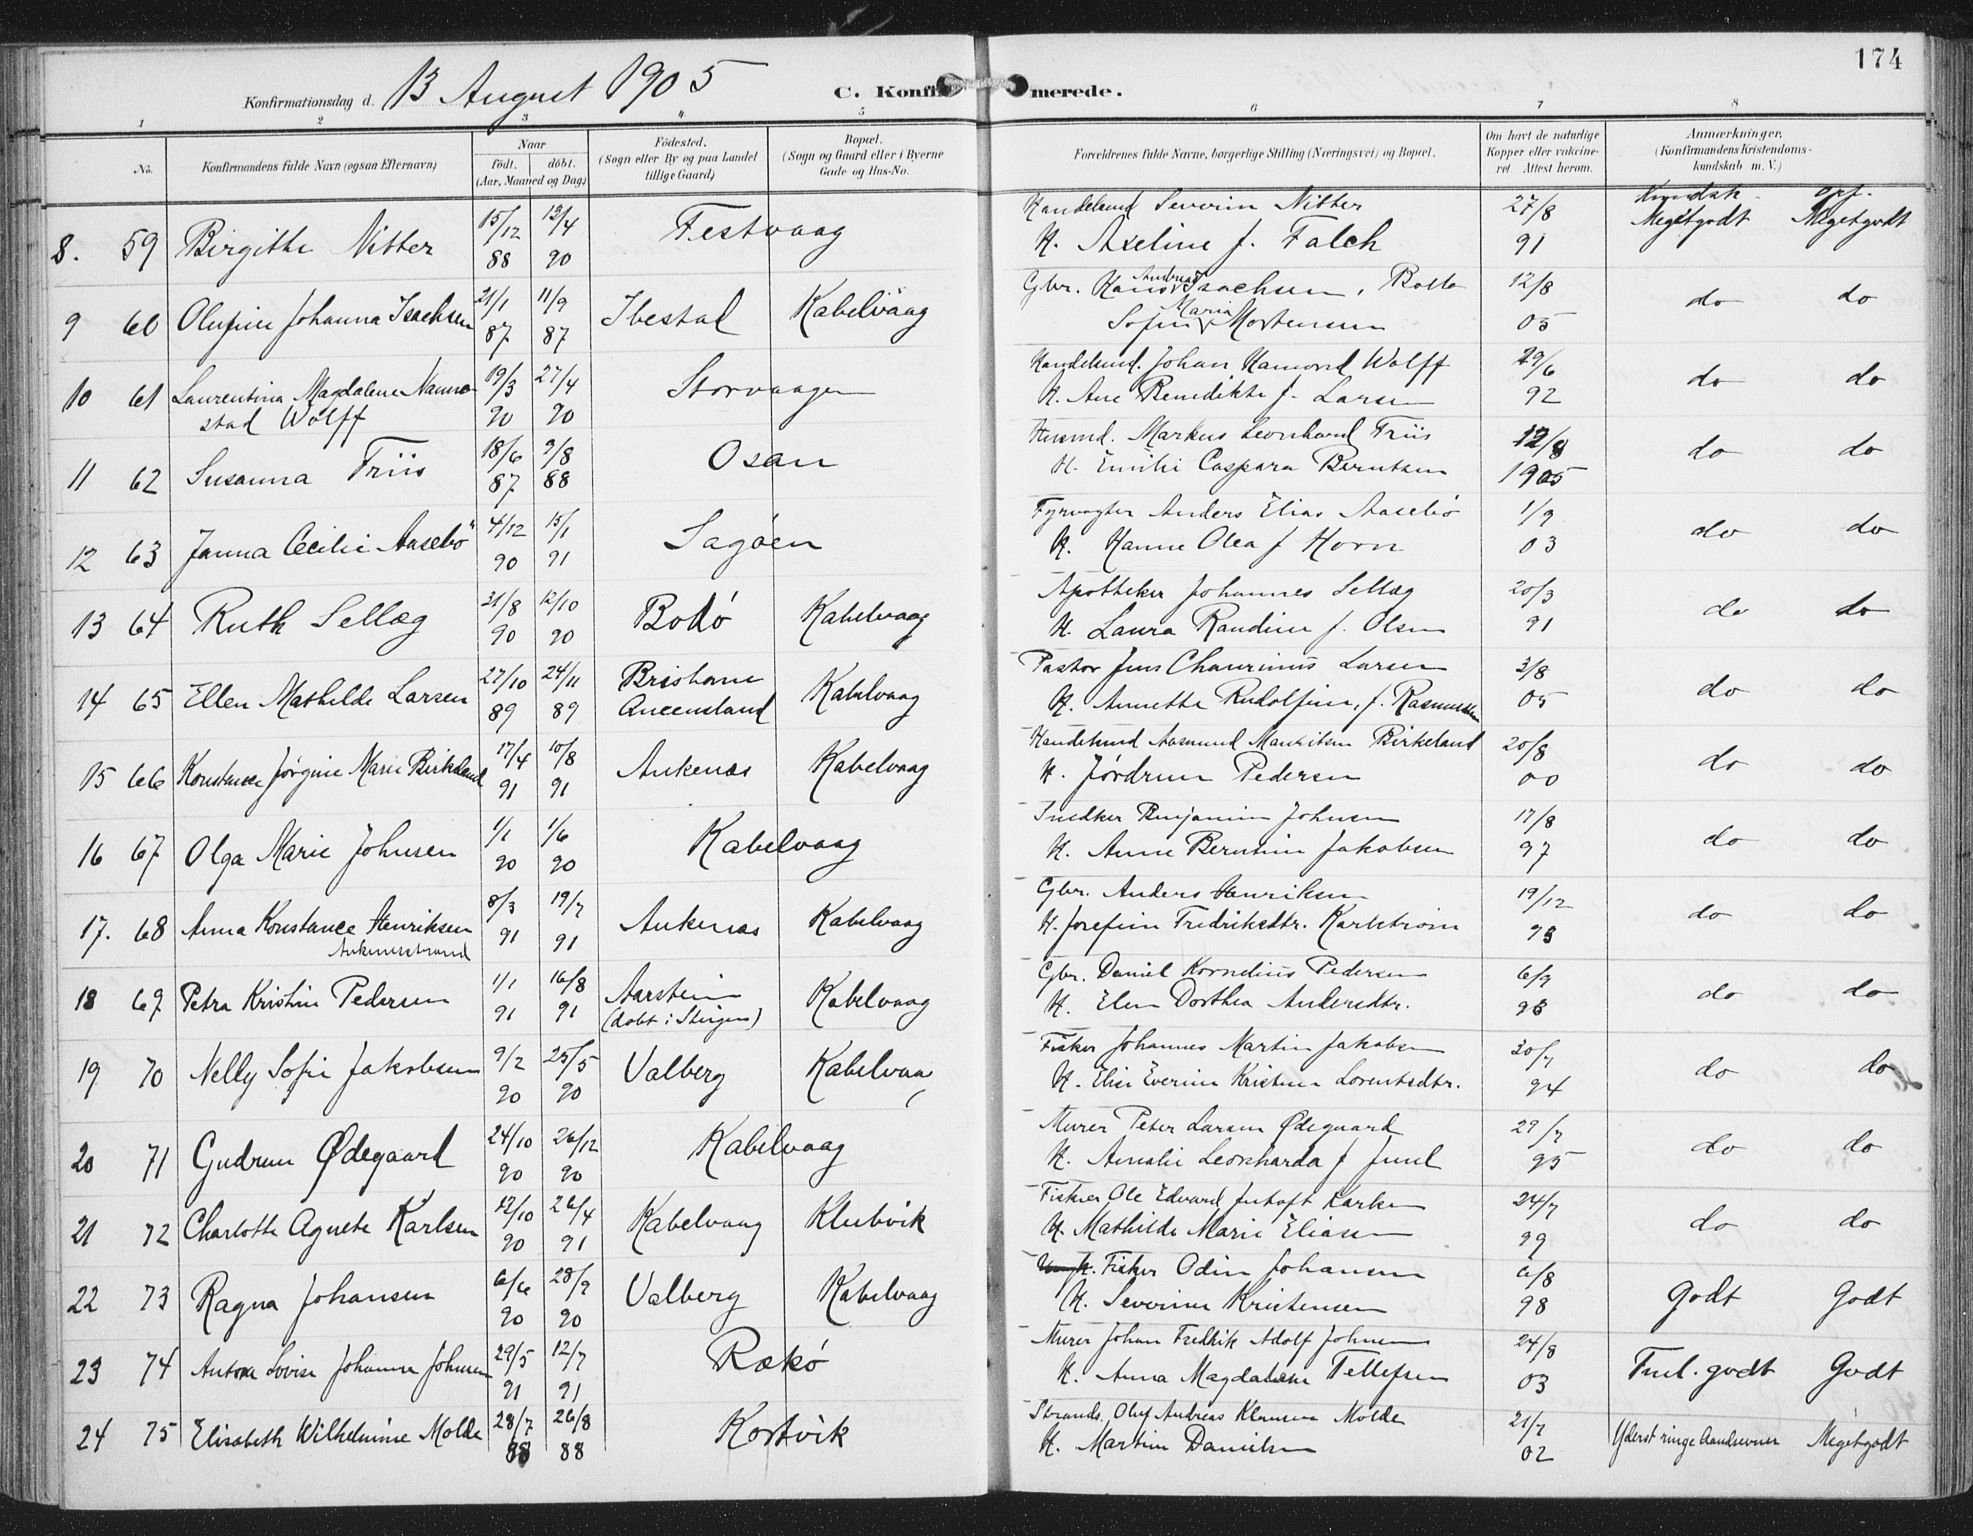 174
Konfirmationsdag d. 13 August 1905 C. Konfir merede.
1 2 3 4 5 6 7 8
No. Konfirmandens fulde Navn (ogsaa Efternavn) Naar født. døbt. (Aar, Maaned og Dag.) Fødested. (Sogn eller By og paa Landet tillige Gaard) Bopæl. (Sogn og Gaard eller i Byerne Gade og Hus-No. Forældrenes fulde Navne, borgerlige Stilling (Næringsvei) og Bopæl. Om havt de naturlige Kopper eller vakcineret. Attest herom. Anmærkninger. (Konfirmandens Kristendomskundskab m. V.)
Kundsk. opf.
8. 59 Birgithe Nitter 15/12 88 13/4 90 Festvaag Handelsmd Severin Nitter 27/8 91 Megetgodt Megetgodt
H. Axeline f. Falch
9 60 Olufine Johanna Isachsen 21/1 87 11/9 87 Ibestad Kabelvaag Gbr. Hans Andreas Isachsen, Rolla 12/8 05 do do
Sofie Maria Mortensen
10 61 Laurentina Magdalena Nannestad Wolff 19/3 90 27/4 90 Storvaagen Handelsmd. Johan Hamond Wolff 29/6 92 do do
H. Ane Benedikte f. Larsen
11 62 Susanna Friis 18/6 87 9/8 88 Osan Husmd. Markus Leonhard Friis 12/8 1905 do do
H. Emilie Caspara Berntsen
12 63 Janna Cecilie Aasebø 4/12 90 15/1 91 Sagøen Fyrvogter Anders Elias Aasebø 1/9 03 do do
H. Hanne Olea f Horn
13 64 Ruth Sellæg 31/8 90 12/10 90 Bodø Kabelvaag Apotheker Johannes Sellæg 20/3 91 do do
H. Laura Randine f. Olsen
14 65 Ellen Mathilde Larsen 27/10 89 24/11 89 Brisbane Queensland Kabelvaag Pastor Jens Chaurinus Larsen 3/8 05 do do
H. Annette Rudolfine, f. Rasmussen
15 66 Konstance Jørgine Marie Birkeland 17/4 91 10/8 91 Ankenæs Kabelvaag Handelsmd Aasmund Mauritsen Birkeland 20/8 00 do do
H. Jørdrun Pedersen
16 67 Olga Marie Johnsen 1/1 90 1/6 90 Kabelvaag Snedker Benjamin Johnsen 17/8 97 do do
H. Anne Berntine Jakobsen
17. 68 Anna Konstance Henriksen Ankenesstrand 8/3 91 19/7 91 Ankenæs Kabelvaag Gbr. Anders Henriksen 19/12 95 do do
H. Josefine Fredriksdtr. Karlstrøm
18 69 Petra Kristine Pedersen 1/1 91 16/8 91 Aarstein (døbt i Steigen) Kabelvaag Gbr. Daniel Kornelius Pedersen 6/9 96 do do
H. Elen Dorthea Andersdtr.
19 70 Nelly Sofie Jakobsen 9/2 90 25/5 90 Valberg Kabelvaa Fisker Johannes Martin Jakobsen 30/7 94 do do
H. Elise Everine Kristine Lorentsdtr.
20 71 Gudrun Ødegaard 24/10 90 26/12 90 Kabelvaag Murer Peter Larsen Ødegaard 29/7 95 do do
H. Amalie Leonharda f Juul
21 72 Charlotte Agnete Karlsen 12/10 90 26/4 91 Kabelvaag Klubvik Fisker Ole Edvard Karlsen 24/7 99 do do
H. Mathilde Marie Eliasen
22 73 Ragna Johansen 6/6 90 28/9 90 Valberg Kabelvaag Fisker Odin Johansen 6/8 98 Godt Godt
H. Severine Kristensen
23 74 Antona Lovise Johanna Johnsen 29/5 91 12/7 91 Rækø Murer Johan Fredrik Adolf Johnsen 24/8 03 Tml. godt Godt
H. Anna Magdalene Tellefsen
24 75 Elisabeth Wilhelmine Molde 28/7 88 26/8 88 Kortvik Strands. Oluf Andreas Klausen Molde 21/7 02 Yderst ringe Aandsevner Megetgodt
H. Martine Danielsen